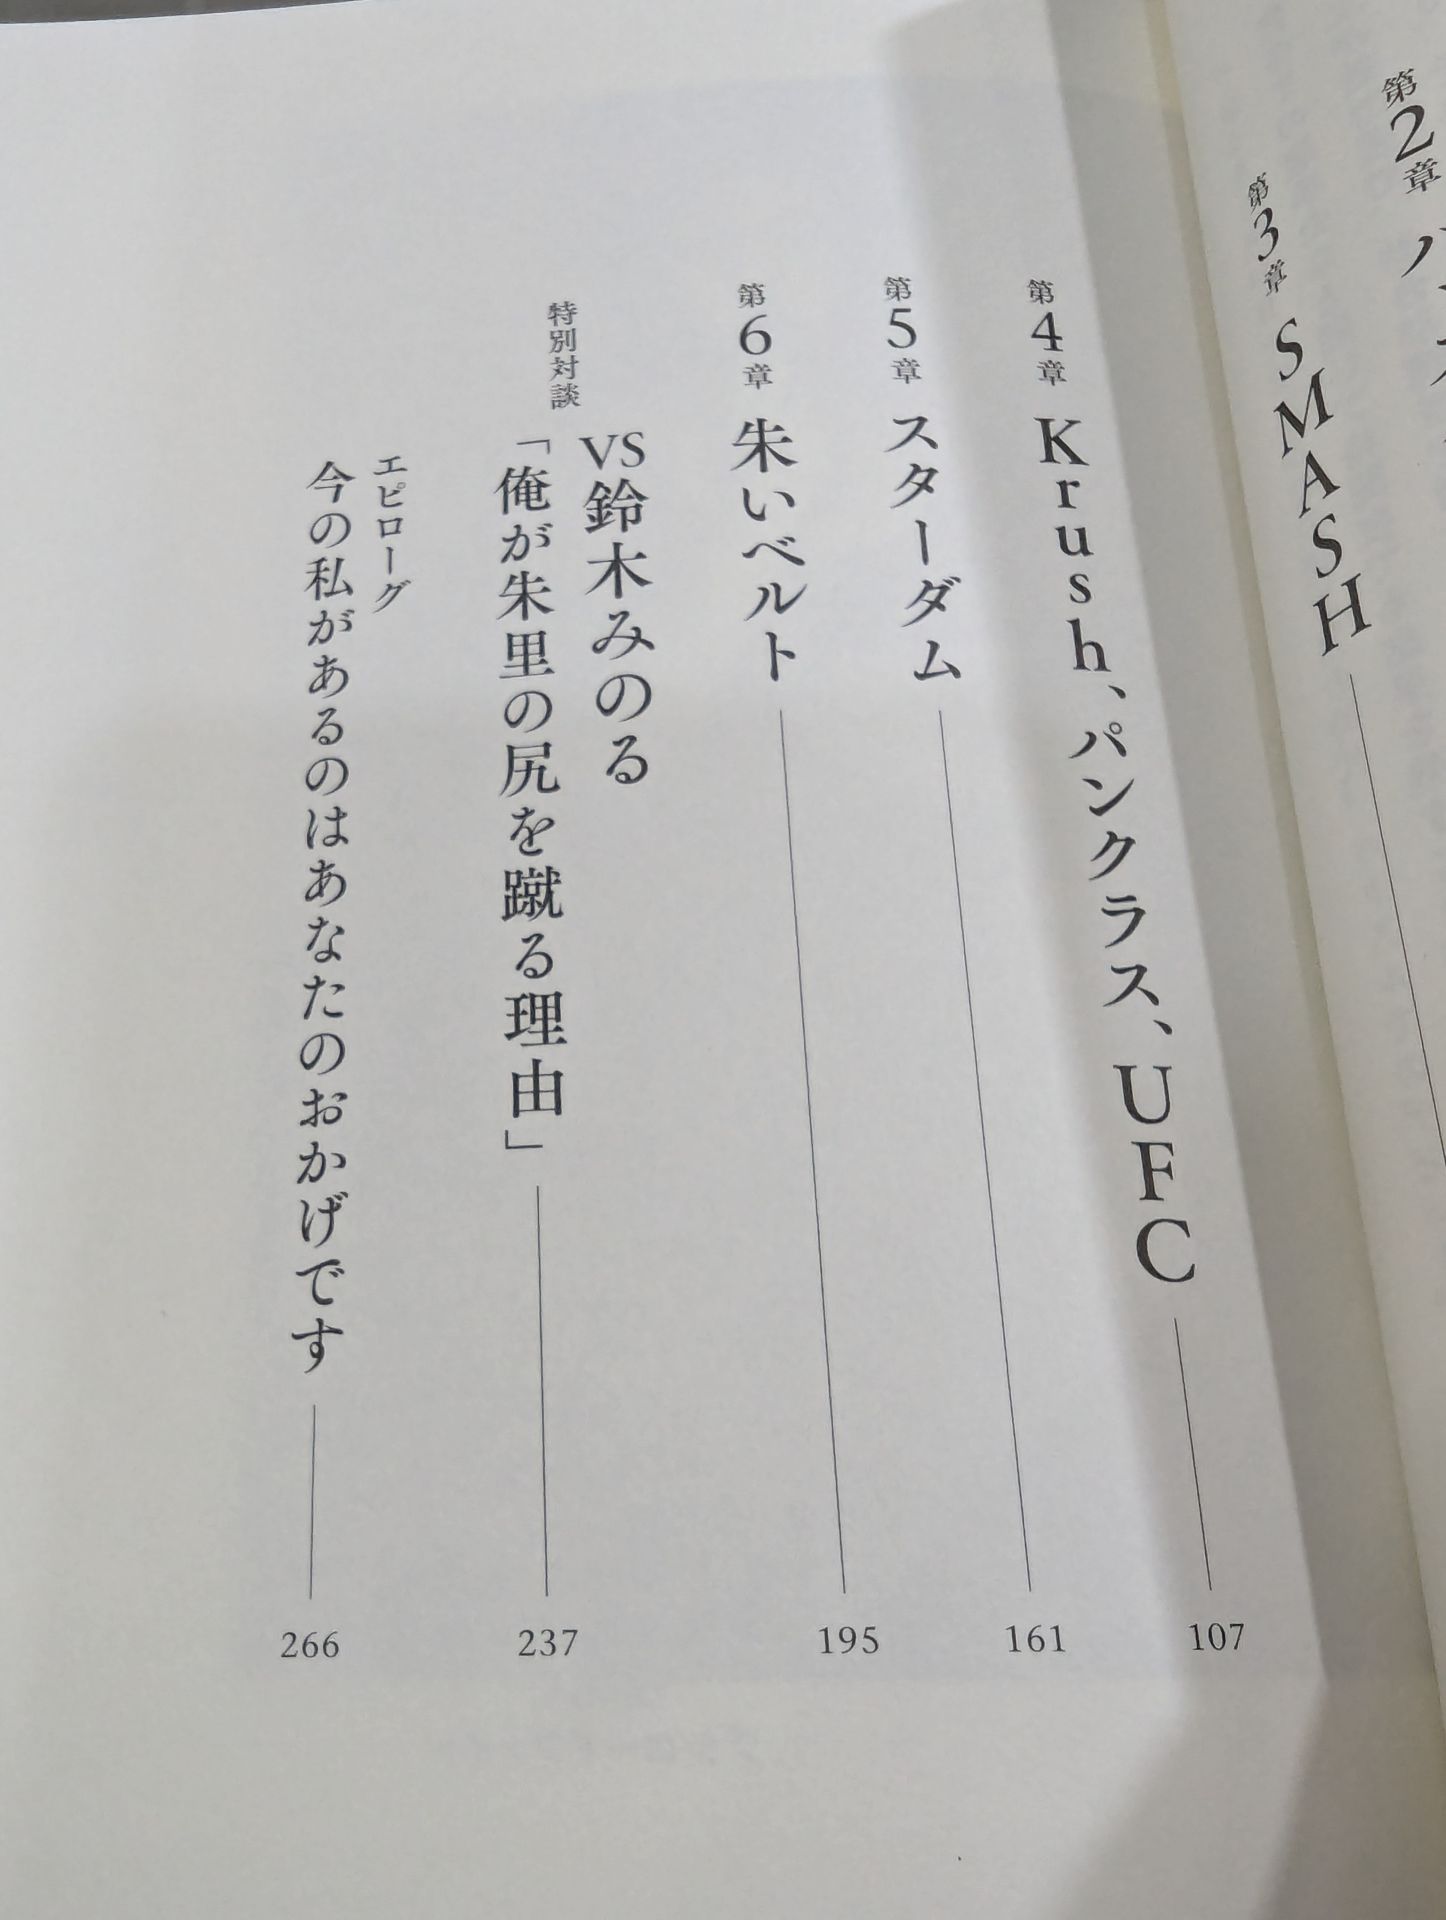 第2章
第3章 SMASH
第4章 Krush、パンクラス、UFC 107
第5章 スターダム 161
第6章 朱いベルト 195
特別対談 VS鈴木みのる
「俺が朱里の尻を蹴る理由」 237
エピローグ
今の私があるのはあなたのおかげです 266